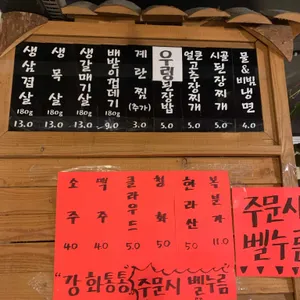 생삼겹살 180g 13.0
생목살 180g 13.0
생갈매기살 180g 13.0
배받이껍데기 180g 9.0
계란찜 (추가) 3.0
우렁된장밥 5.0
얼큰고추장찌개 5.0
시골된장찌개 5.0
물&비빔냉면 4.0
소주 4.0
맥주 4.0
클라우드 5.0
청하 5.0
한라산 5.0
복분자 11.0
"강화통통" 주문시 벨누름
주문시
벨누름